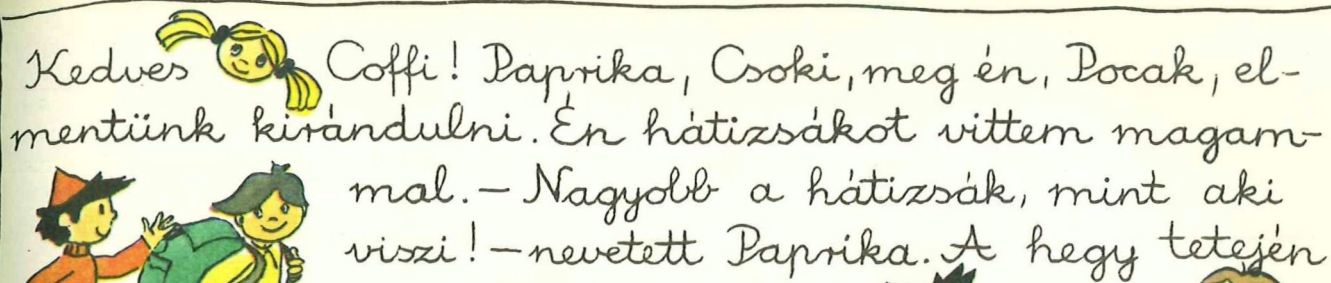 Kedves Coffi! Paprika, Csoki, meg én, Pocak, el-
mentünk kirándulni. Én hátizsákot vittem magam-
mal. – Nagyobb a hátizsák, mint aki
viszi! – nevetett Paprika. A hegy tetején